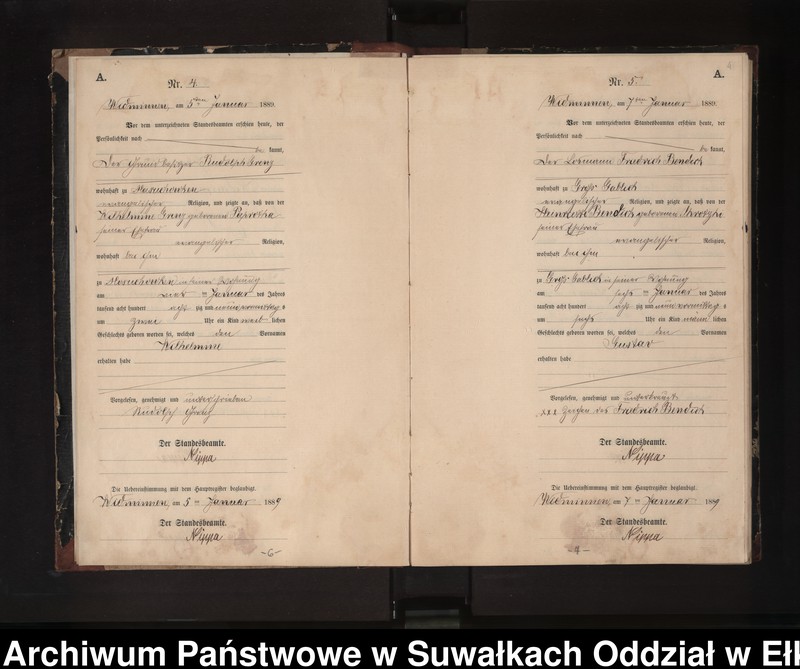 A.
Nr. 4.
Widminnen, am 5ten Januar 1889.
Vor dem unterzeichneten Standesbeamten erschien heute, der
Persönlichkeit nach
be kannt,
Der Grundbesitzer Rudolph
wohnhaft zu
evangelischer Religion, und zeigte an, daß von der
Wilhelmine geborenen
seiner Ehefrau
evangelischer Religion,
wohnhaft bei ihm
zu in seiner Wohnung
am Januar des Jahres
tausend acht hundert acht zig und neun Vormittag s
um zwei Uhr ein Kind weib lichen
Geschlechts geboren worden sei, welches den Vornamen
Wilhelmine
erhalten habe
Vorgelesen, genehmigt und unterschrieben
Rudolph
Der Standesbeamte.
Nippa
Die Uebereinstimmung mit dem Hauptregister beglaubigt.
Widminnen, am 5ten Januar 1889
Der Standesbeamte.
Nippa
-6-
A.
Nr. 5.
Widminnen, am 7ten Januar 1889.
Vor dem unterzeichneten Standesbeamten erschien heute, der
Persönlichkeit nach
be kannt,
Der Losmann Friedrich Bendich
wohnhaft zu Groß Gablick
evangelischer Religion, und zeigte an, daß von der
Bendich geborenen
seiner Ehefrau
evangelischer Religion,
wohnhaft bei ihm
zu Groß Gablick in seiner Wohnung
am sechsten Januar des Jahres
tausend acht hundert acht zig und neun Vormittag s
um sechs Uhr ein Kind männ lichen
Geschlechts geboren worden sei, welches den Vornamen
Gustav
erhalten habe
Vorgelesen, genehmigt und unterkreuzt
xxx Zeichen des Friedrich Bendich
Der Standesbeamte.
Nippa
Die Uebereinstimmung mit dem Hauptregister beglaubigt.
Widminnen, am 7ten Januar 1889
Der Standesbeamte.
Nippa
Archiwum Państwowe w Suwałkach Oddział w Eł